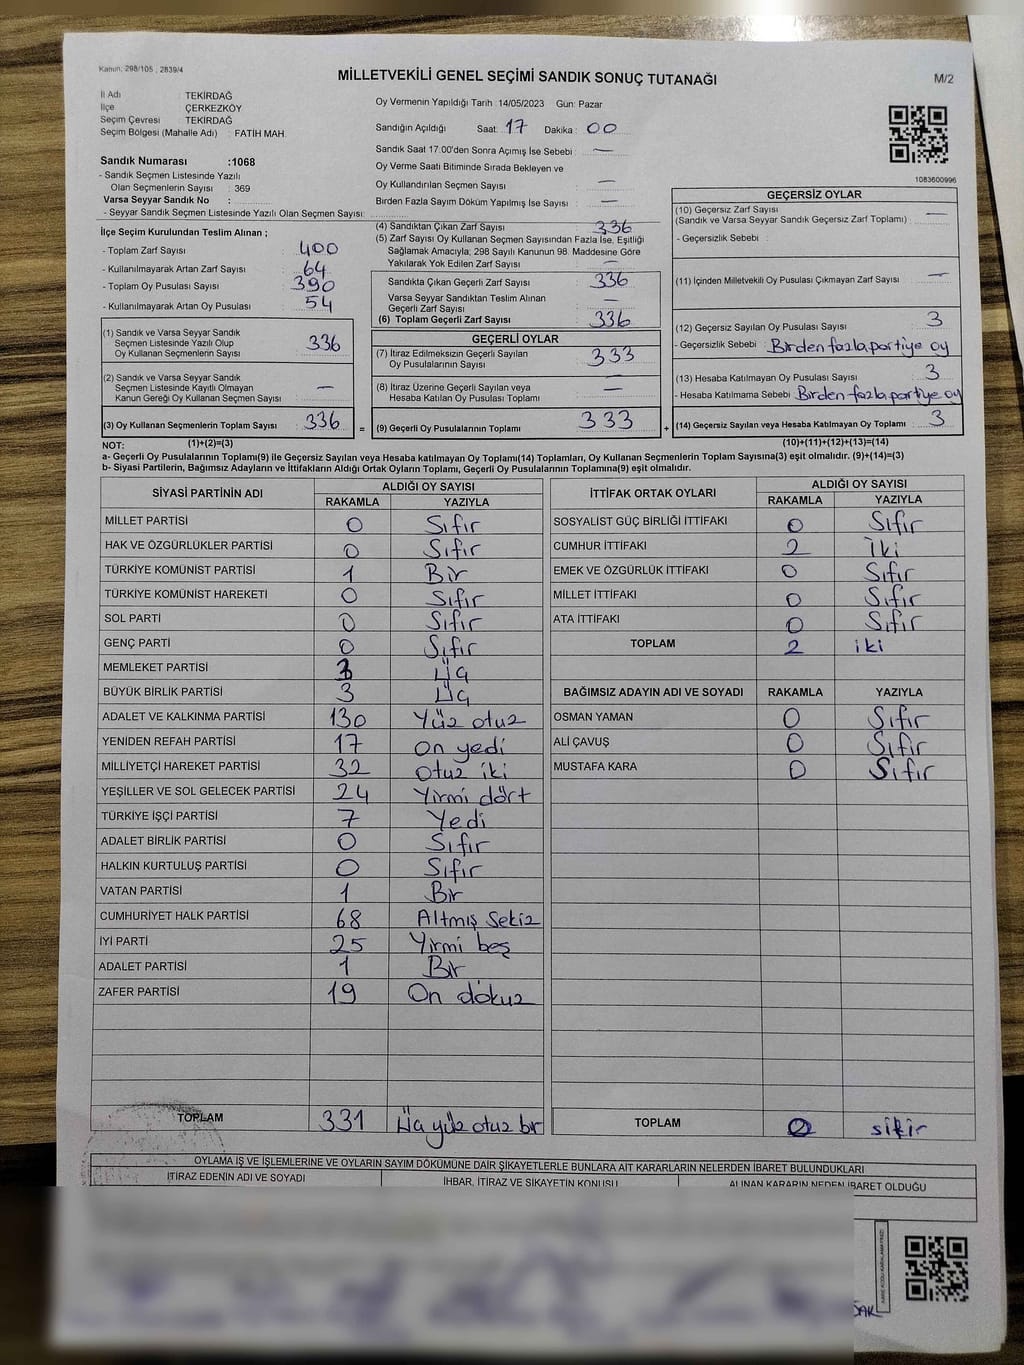 Kanun: 298/105 , 2839/4
MİLLETVEKİLİ GENEL SEÇİMİ SANDIK SONUÇ TUTANAĞI
M/2
İl Adı : TEKİRDAĞ
İlçe : ÇERKEZKÖY
Seçim Çevresi : TEKİRDAĞ
Seçim Bölgesi (Mahalle Adı) : FATİH MAH.
Oy Vermenin Yapıldığı Tarih : 14/05/2023 Gün: Pazar
Sandığın Açıldığı Saat: 17 Dakika : 00
Sandık Saat 17.00'den Sonra Açımış İse Sebebi : —
Oy Verme Saati Bitiminde Sırada Bekleyen ve
Oy Kullandırılan Seçmen Sayısı : —
Birden Fazla Sayım Döküm Yapılmış İse Sayısı : —
1083600996
Sandık Numarası :1068
- Sandık Seçmen Listesinde Yazılı
Olan Seçmenlerin Sayısı : 369
Varsa Seyyar Sandık No :
- Seyyar Sandık Seçmen Listesinde Yazılı Olan Seçmen Sayısı:
İlçe Seçim Kurulundan Teslim Alınan ;
- Toplam Zarf Sayısı : 400
- Kullanılmayarak Artan Zarf Sayısı : 64
- Toplam Oy Pusulası Sayısı : 390
- Kullanılmayarak Artan Oy Pusulası : 54
(1) Sandık ve Varsa Seyyar Sandık
Seçmen Listesinde Yazılı Olup
Oy Kullanan Seçmenlerin Sayısı : 336
(2) Sandık ve Varsa Seyyar Sandık
Seçmen Listesinde Kayıtlı Olmayan
Kanun Gereği Oy Kullanan Seçmen Sayısı : —
(3) Oy Kullanan Seçmenlerin Toplam Sayısı : 336 =
(4) Sandıktan Çıkan Zarf Sayısı : 336
(5) Zarf Sayısı Oy Kullanan Seçmen Sayısından Fazla İse, Eşitliği
Sağlamak Amacıyla; 298 Sayılı Kanunun 98. Maddesine Göre
Yakılarak Yok Edilen Zarf Sayısı : —
Sandıkta Çıkan Geçerli Zarf Sayısı : 336
Varsa Seyyar Sandıktan Teslim Alınan
Geçerli Zarf Sayısı : —
(6) Toplam Geçerli Zarf Sayısı : 336
GEÇERLİ OYLAR
(7) İtiraz Edilmeksizin Geçerli Sayılan
Oy Pusulalarının Sayısı : 333
(8) İtiraz Üzerine Geçerli Sayılan veya
Hesaba Katılan Oy Pusulası Toplamı : —
(9) Geçerli Oy Pusulalarının Toplamı : 333 +
GEÇERSİZ OYLAR
(10) Geçersiz Zarf Sayısı
(Sandık ve Varsa Seyyar Sandık Geçersiz Zarf Toplamı) : —
- Geçersizlik Sebebi :
(11) İçinden Milletvekili Oy Pusulası Çıkmayan Zarf Sayısı : —
(12) Geçersiz Sayılan Oy Pusulası Sayısı : 3
- Geçersizlik Sebebi : Birden fazla partiye oy
(13) Hesaba Katılmayan Oy Pusulası Sayısı : 3
- Hesaba Katılmama Sebebi : Birden fazla partiye oy
(14) Geçersiz Sayılan veya Hesaba Katılmayan Oy Toplamı : 3
NOT: (1)+(2)=(3) (10)+(11)+(12)+(13)=(14)
a- Geçerli Oy Pusulalarının Toplamı(9) ile Geçersiz Sayılan veya Hesaba katılmayan Oy Toplamı(14) Toplamları, Oy Kullanan Seçmenlerin Toplam Sayısına(3) eşit olmalıdır. (9)+(14)=(3)
b- Siyasi Partilerin, Bağımsız Adayların ve İttifakların Aldığı Ortak Oyların Toplamı, Geçerli Oy Pusulalarının Toplamına(9) eşit olmalıdır.
SİYASİ PARTİNİN ADI ALDIĞI OY SAYISI
RAKAMLA YAZIYLA
MİLLET PARTİSİ 0 Sıfır
HAK VE ÖZGÜRLÜKLER PARTİSİ 0 Sıfır
TÜRKİYE KOMÜNİST PARTİSİ 1 Bir
TÜRKİYE KOMÜNİST HAREKETİ 0 Sıfır
SOL PARTİ 0 Sıfır
GENÇ PARTİ 0 Sıfır
MEMLEKET PARTİSİ 3 Üç
BÜYÜK BİRLİK PARTİSİ 3 Üç
ADALET VE KALKINMA PARTİSİ 130 Yüz otuz
YENİDEN REFAH PARTİSİ 17 On yedi
MİLLİYETÇİ HAREKET PARTİSİ 32 Otuz iki
YEŞİLLER VE SOL GELECEK PARTİSİ 24 Yirmi dört
TÜRKİYE İŞÇİ PARTİSİ 7 Yedi
ADALET BİRLİK PARTİSİ 0 Sıfır
HALKIN KURTULUŞ PARTİSİ 0 Sıfır
VATAN PARTİSİ 1 Bir
CUMHURİYET HALK PARTİSİ 68 Altmış Sekiz
İYİ PARTİ 25 Yirmi beş
ADALET PARTİSİ 1 Bir
ZAFER PARTİSİ 19 On dokuz
TOPLAM 331 Üç yüz otuz bir
İTTİFAK ORTAK OYLARI ALDIĞI OY SAYISI
RAKAMLA YAZIYLA
SOSYALİST GÜÇ BİRLİĞİ İTTİFAKI 0 Sıfır
CUMHUR İTTİFAKI 2 İki
EMEK VE ÖZGÜRLÜK İTTİFAKI 0 Sıfır
MİLLET İTTİFAKI 0 Sıfır
ATA İTTİFAKI 0 Sıfır
TOPLAM 2 iki
BAĞIMSIZ ADAYIN ADI VE SOYADI RAKAMLA YAZIYLA
OSMAN YAMAN 0 Sıfır
ALİ ÇAVUŞ 0 Sıfır
MUSTAFA KARA 0 Sıfır
TOPLAM 0 sıfır
OYLAMA İŞ VE İŞLEMLERİNE VE OYLARIN SAYIM DÖKÜMÜNE DAİR ŞİKAYETLERLE BUNLARA AİT KARARLARIN NELERDEN İBARET BULUNDUKLARI
İTİRAZ EDENİN ADI VE SOYADI İHBAR, İTİRAZ VE ŞİKAYETİN KONUSU ALINAN KARARIN NEDEN İBARET OLDUĞU